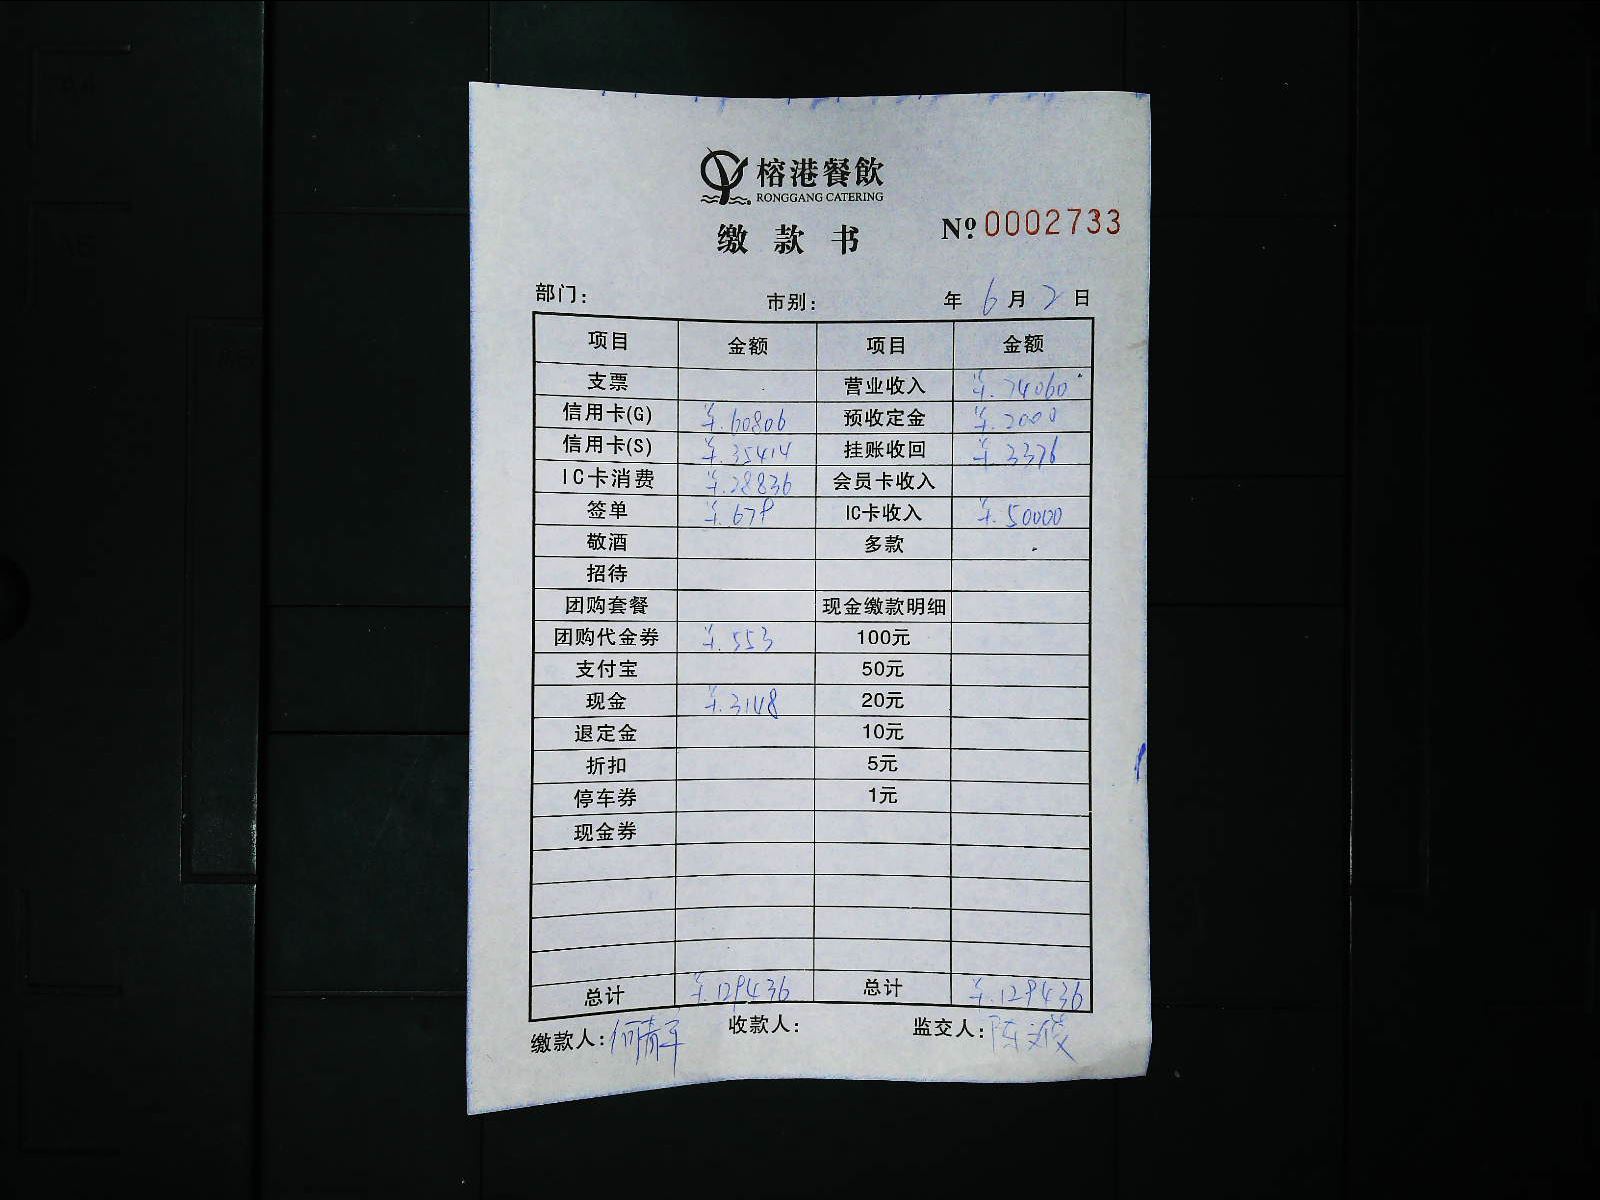 榕港餐飲
RONGGANG CATERING
缴款书
Nº 0002733
部门: 市别: 年 6 月 2 日
项目 金额 项目 金额
支票 营业收入 ¥.74060
信用卡(G) ¥.60806 预收定金 ¥.2000
信用卡(S) ¥.35414 挂账收回 ¥.3376
IC卡消费 ¥.28836 会员卡收入
签单 ¥.679 IC卡收入 ¥.50000
敬酒 多款
招待
团购套餐 现金缴款明细
团购代金券 ¥.553 100元
支付宝 50元
现金 ¥.3148 20元
退定金 10元
折扣 5元
停车券 1元
现金券
总计 ¥.129436 总计 ¥.129436
缴款人: 收款人: 监交人: